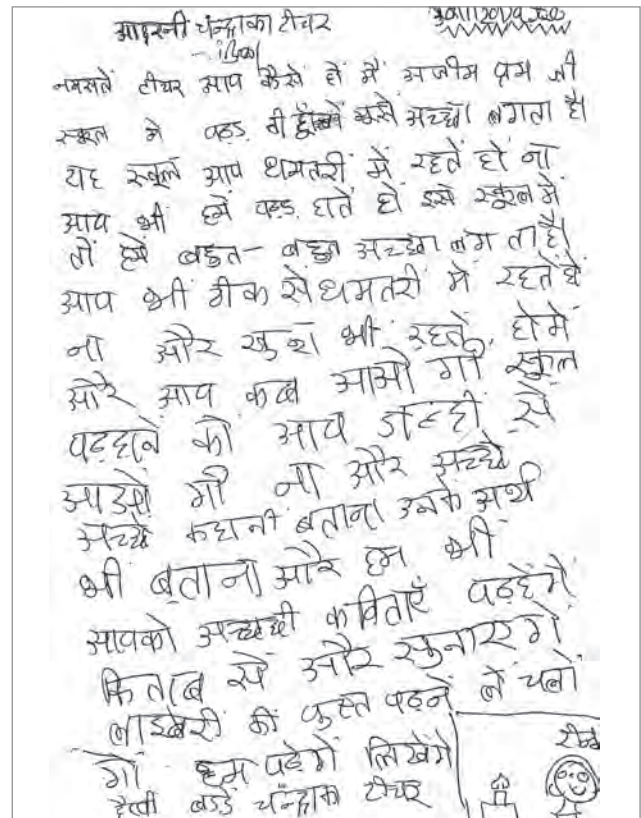 आदरनी चंन्द्राका टीचर
नमसतें टीचर आप कैसे हों मैं अजीम प्रेम जी
स्कूल में पढ़ड़ ती अच्छा लगता है।
यह स्कूल आप धमतरी में रहतें हों ना
आप भी हमें पढ़ड़ हातें हों इसे स्कूल में
तों हमें बहुत - बहुत अच्छा लग ता है।
आप भी ठीक सें धमतरी में रहतें हों
ना और खुश भी रहतें, होंमें
और आप कब आओं गीं स्कूल
पढ़हानें कों आप जल्दी से
आओं गीं ना और अच्छे
अच्छे कहानी बताना उनके अर्थ
भी बताना और हम भी
आपको अच्छछी कविताएँ पढ़हेंगें
किताब सें और सुनाएं गें
लाइब्रेरी कीं पुस्त पढ़नें लें चलों
गीं हम पढ़ेगें लिखेंगे
हैप्पी बड्डे चंन्द्राका टीचर